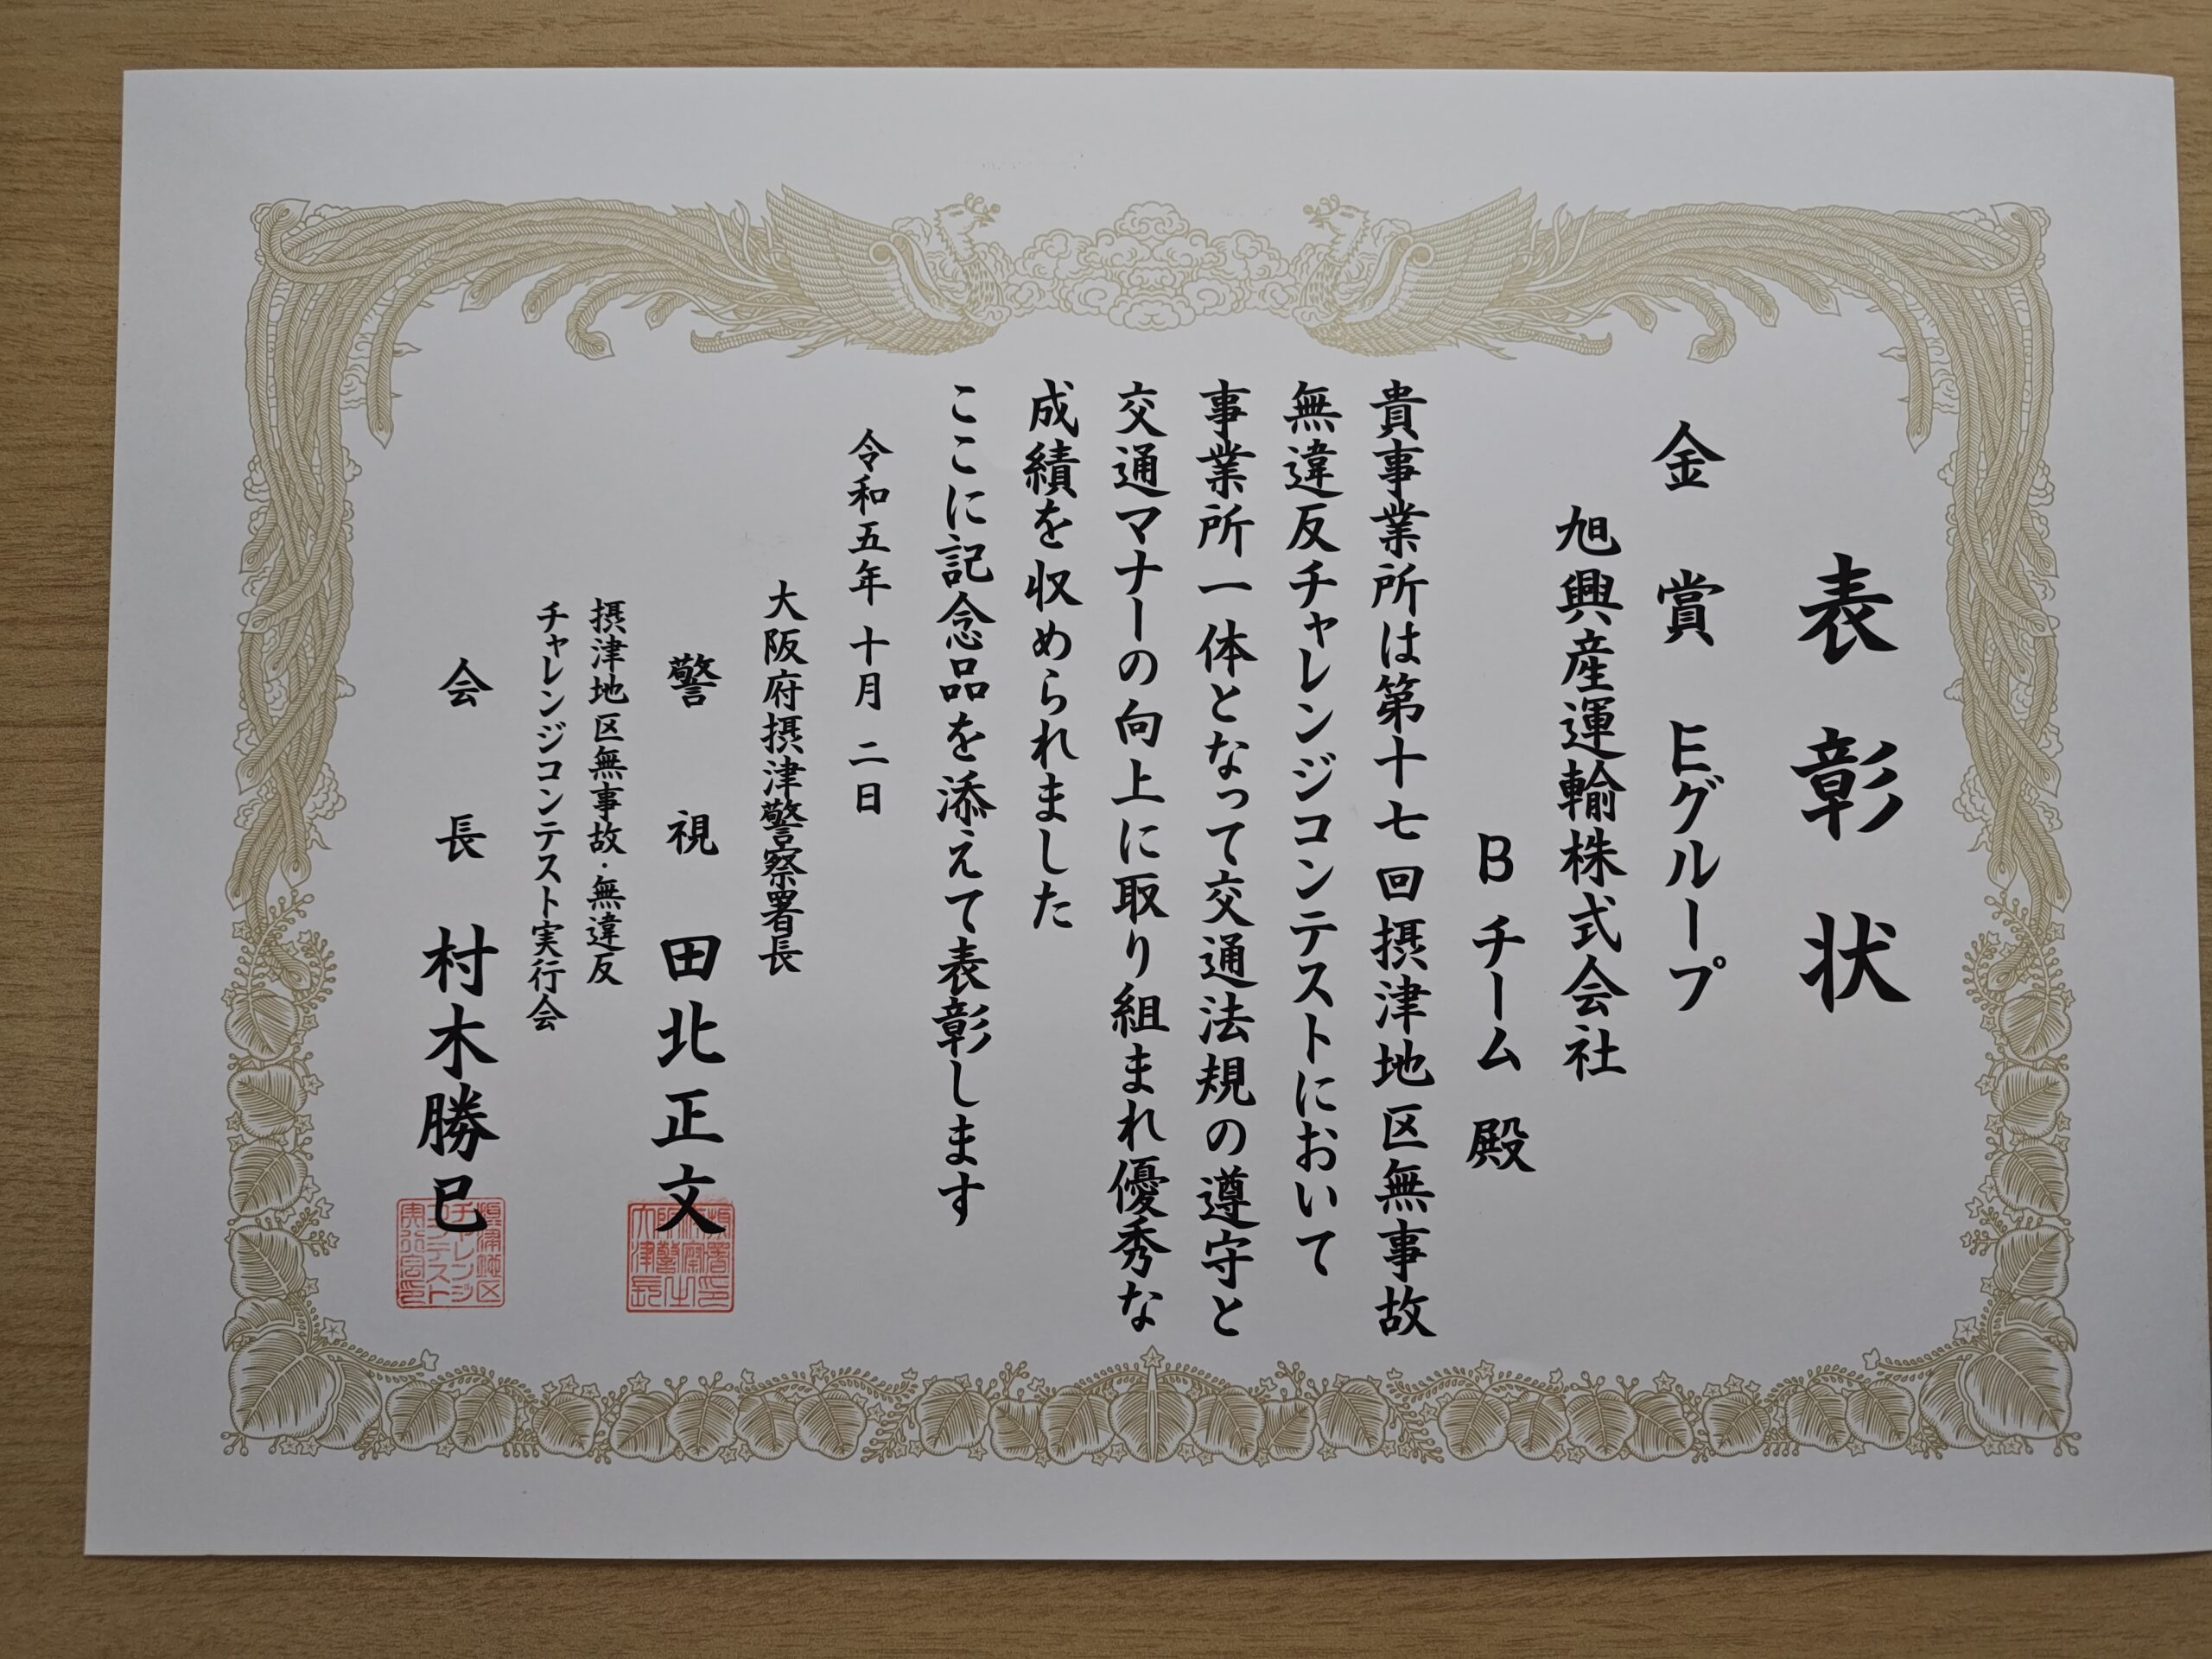 表彰状
金賞 Eグループ
旭興産運輸株式会社
Bチーム 殿
貴事業所は第十七回摂津地区無事故
無違反チャレンジコンテストにおいて
事業所一体となって交通法規の遵守と
交通マナーの向上に取り組まれ優秀な
成績を収められました
ここに記念品を添えて表彰します
令和五年 十月 二日
大阪府摂津警察署長
警視 田北正文
摂津地区無事故・無違反
チャレンジコンテスト実行会
会長 村木勝巳